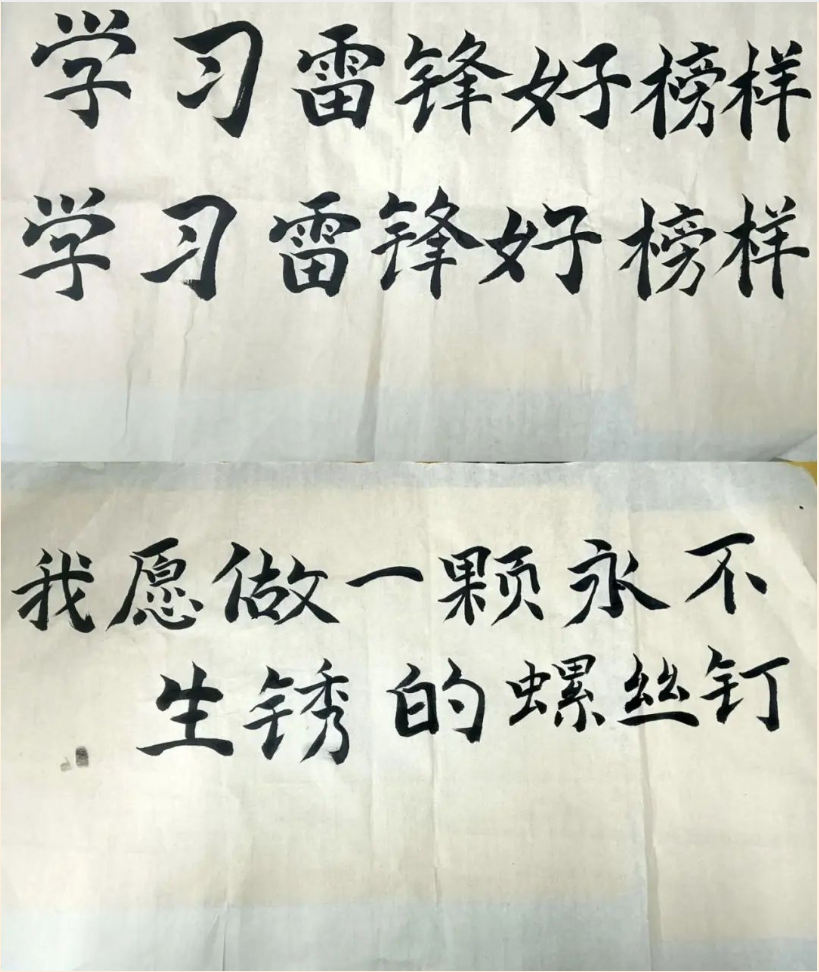 学习雷锋好榜样
学习雷锋好榜样
我愿做一颗永不
生锈的螺丝钉